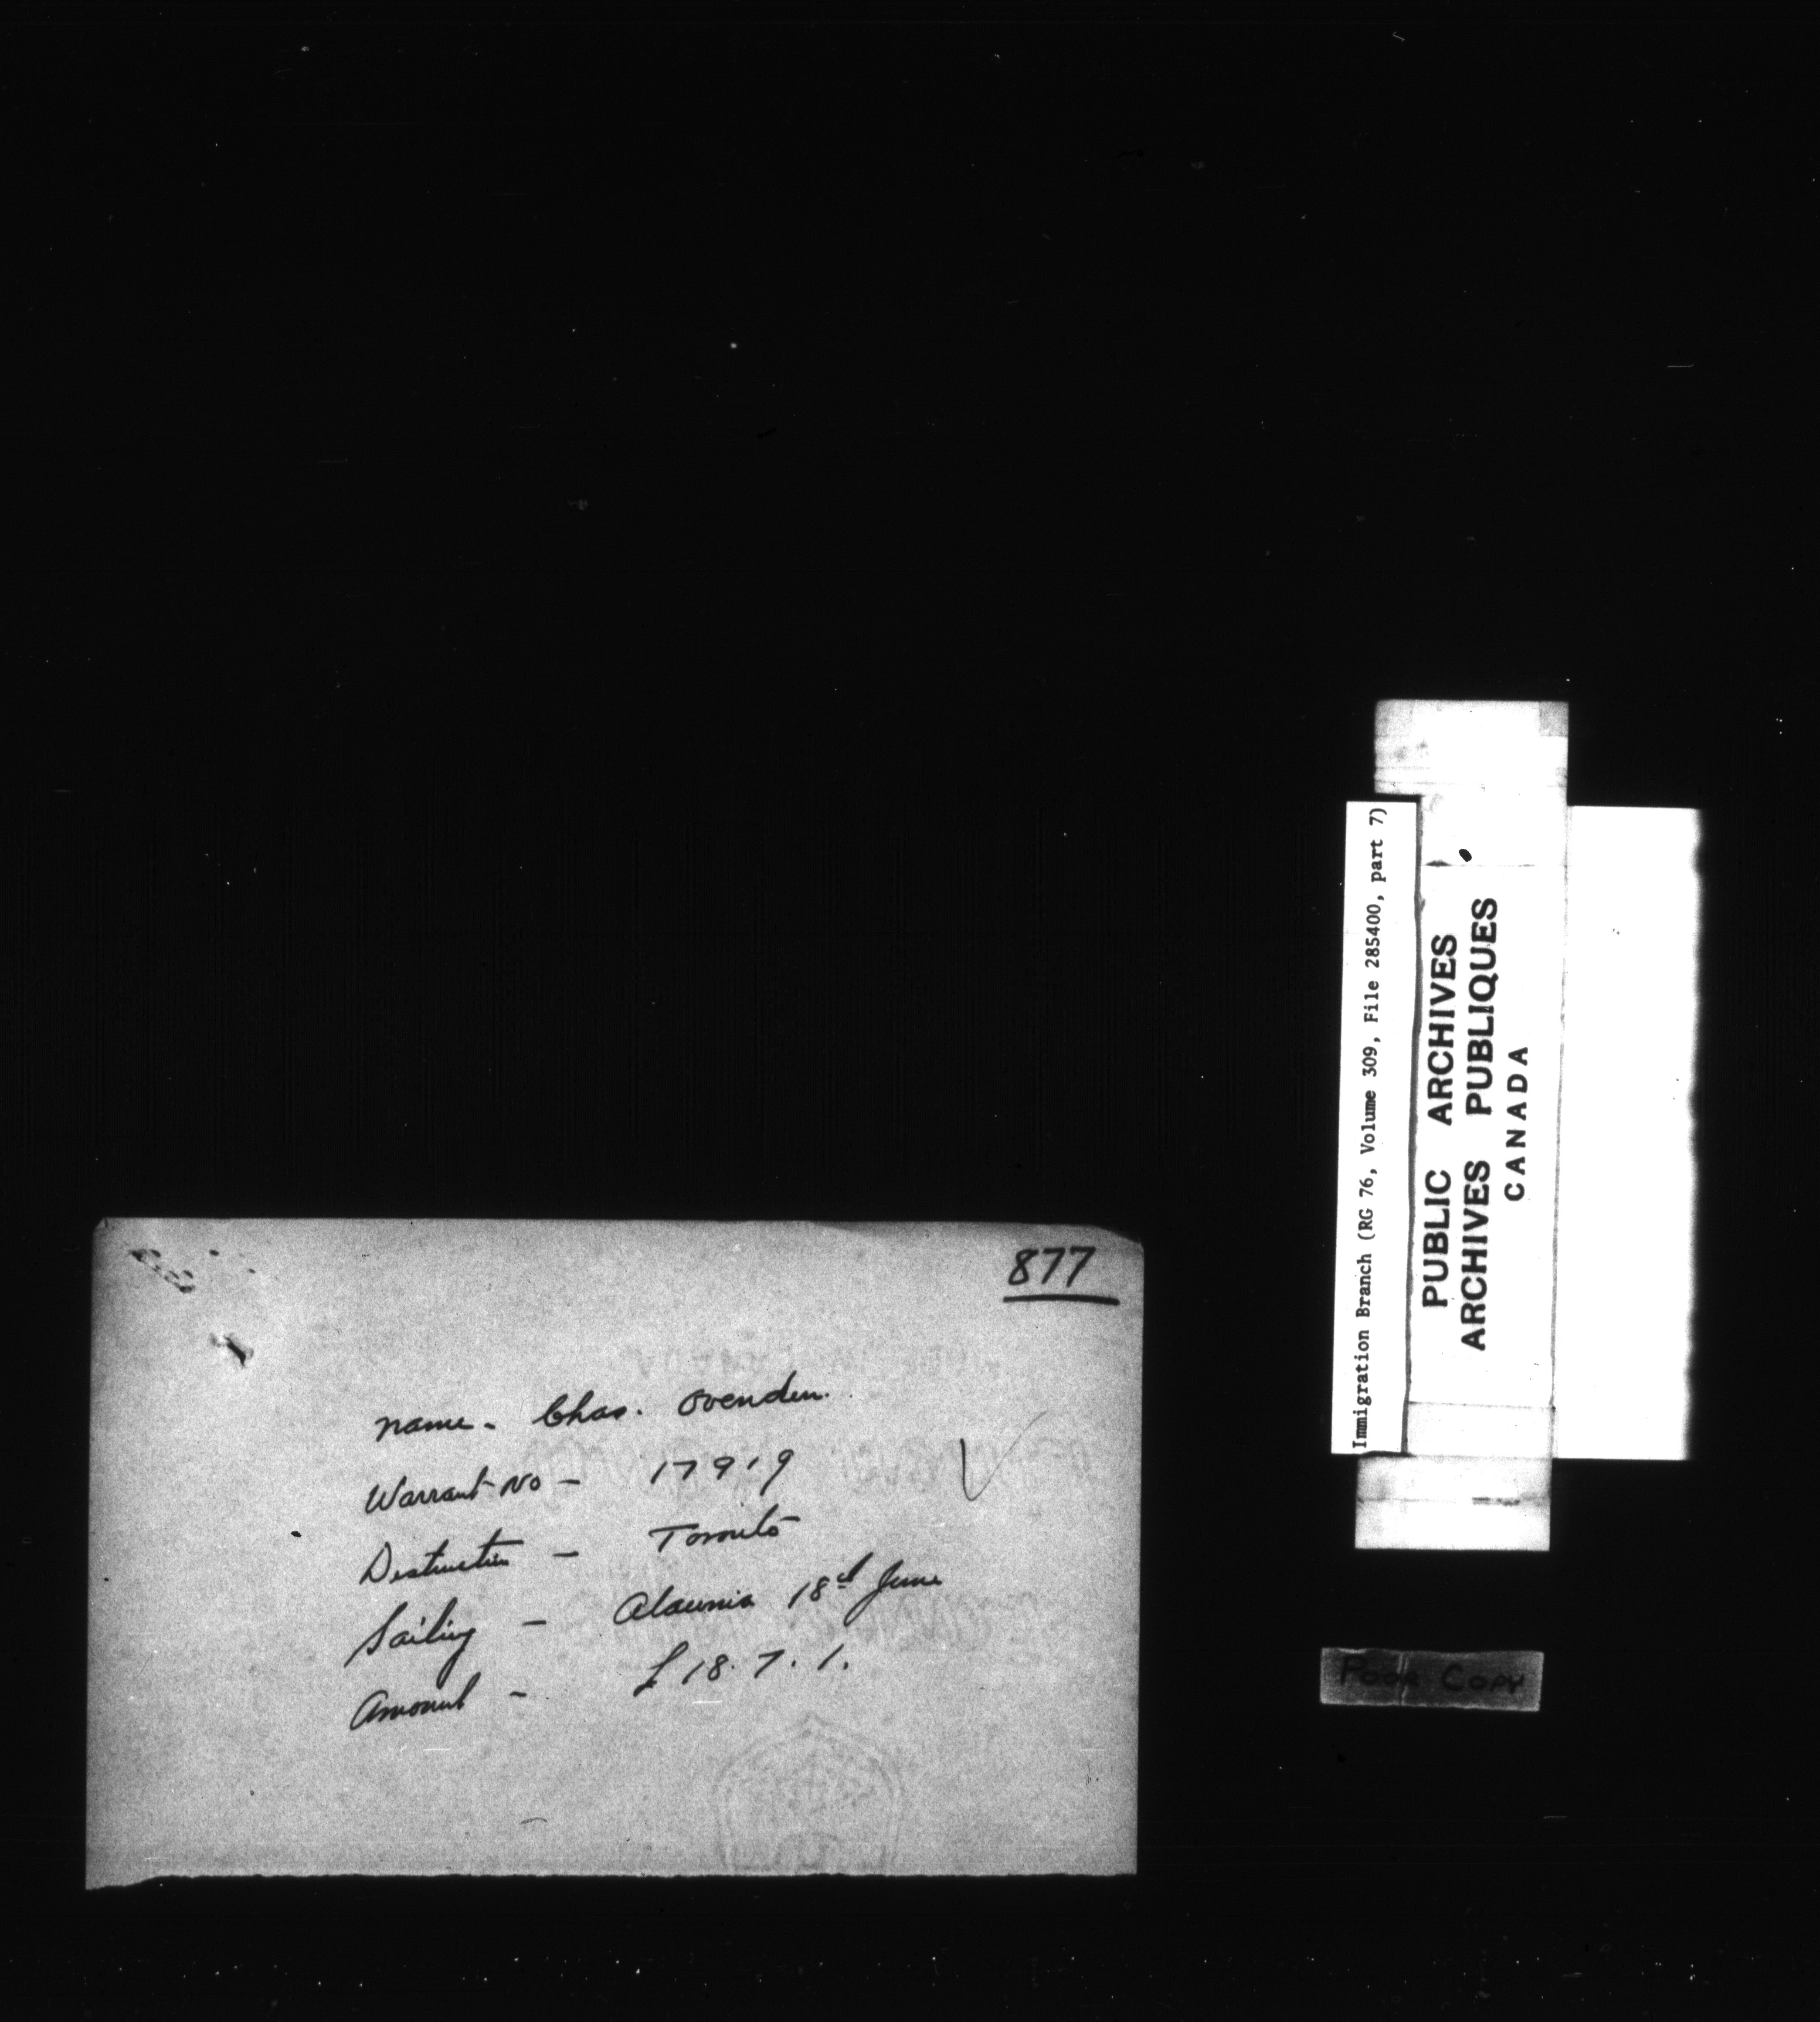 877
Name - Chas. Ovenden.
Warrant No - 17919
Destination - Toronto
Sailing - Alaunia 18th June
Amount - £18.7.1.
Immigration Branch (RG 76, Volume 309, File 285400, part 7)
PUBLIC ARCHIVES
ARCHIVES PUBLIQUES
CANADA
Poor Copy